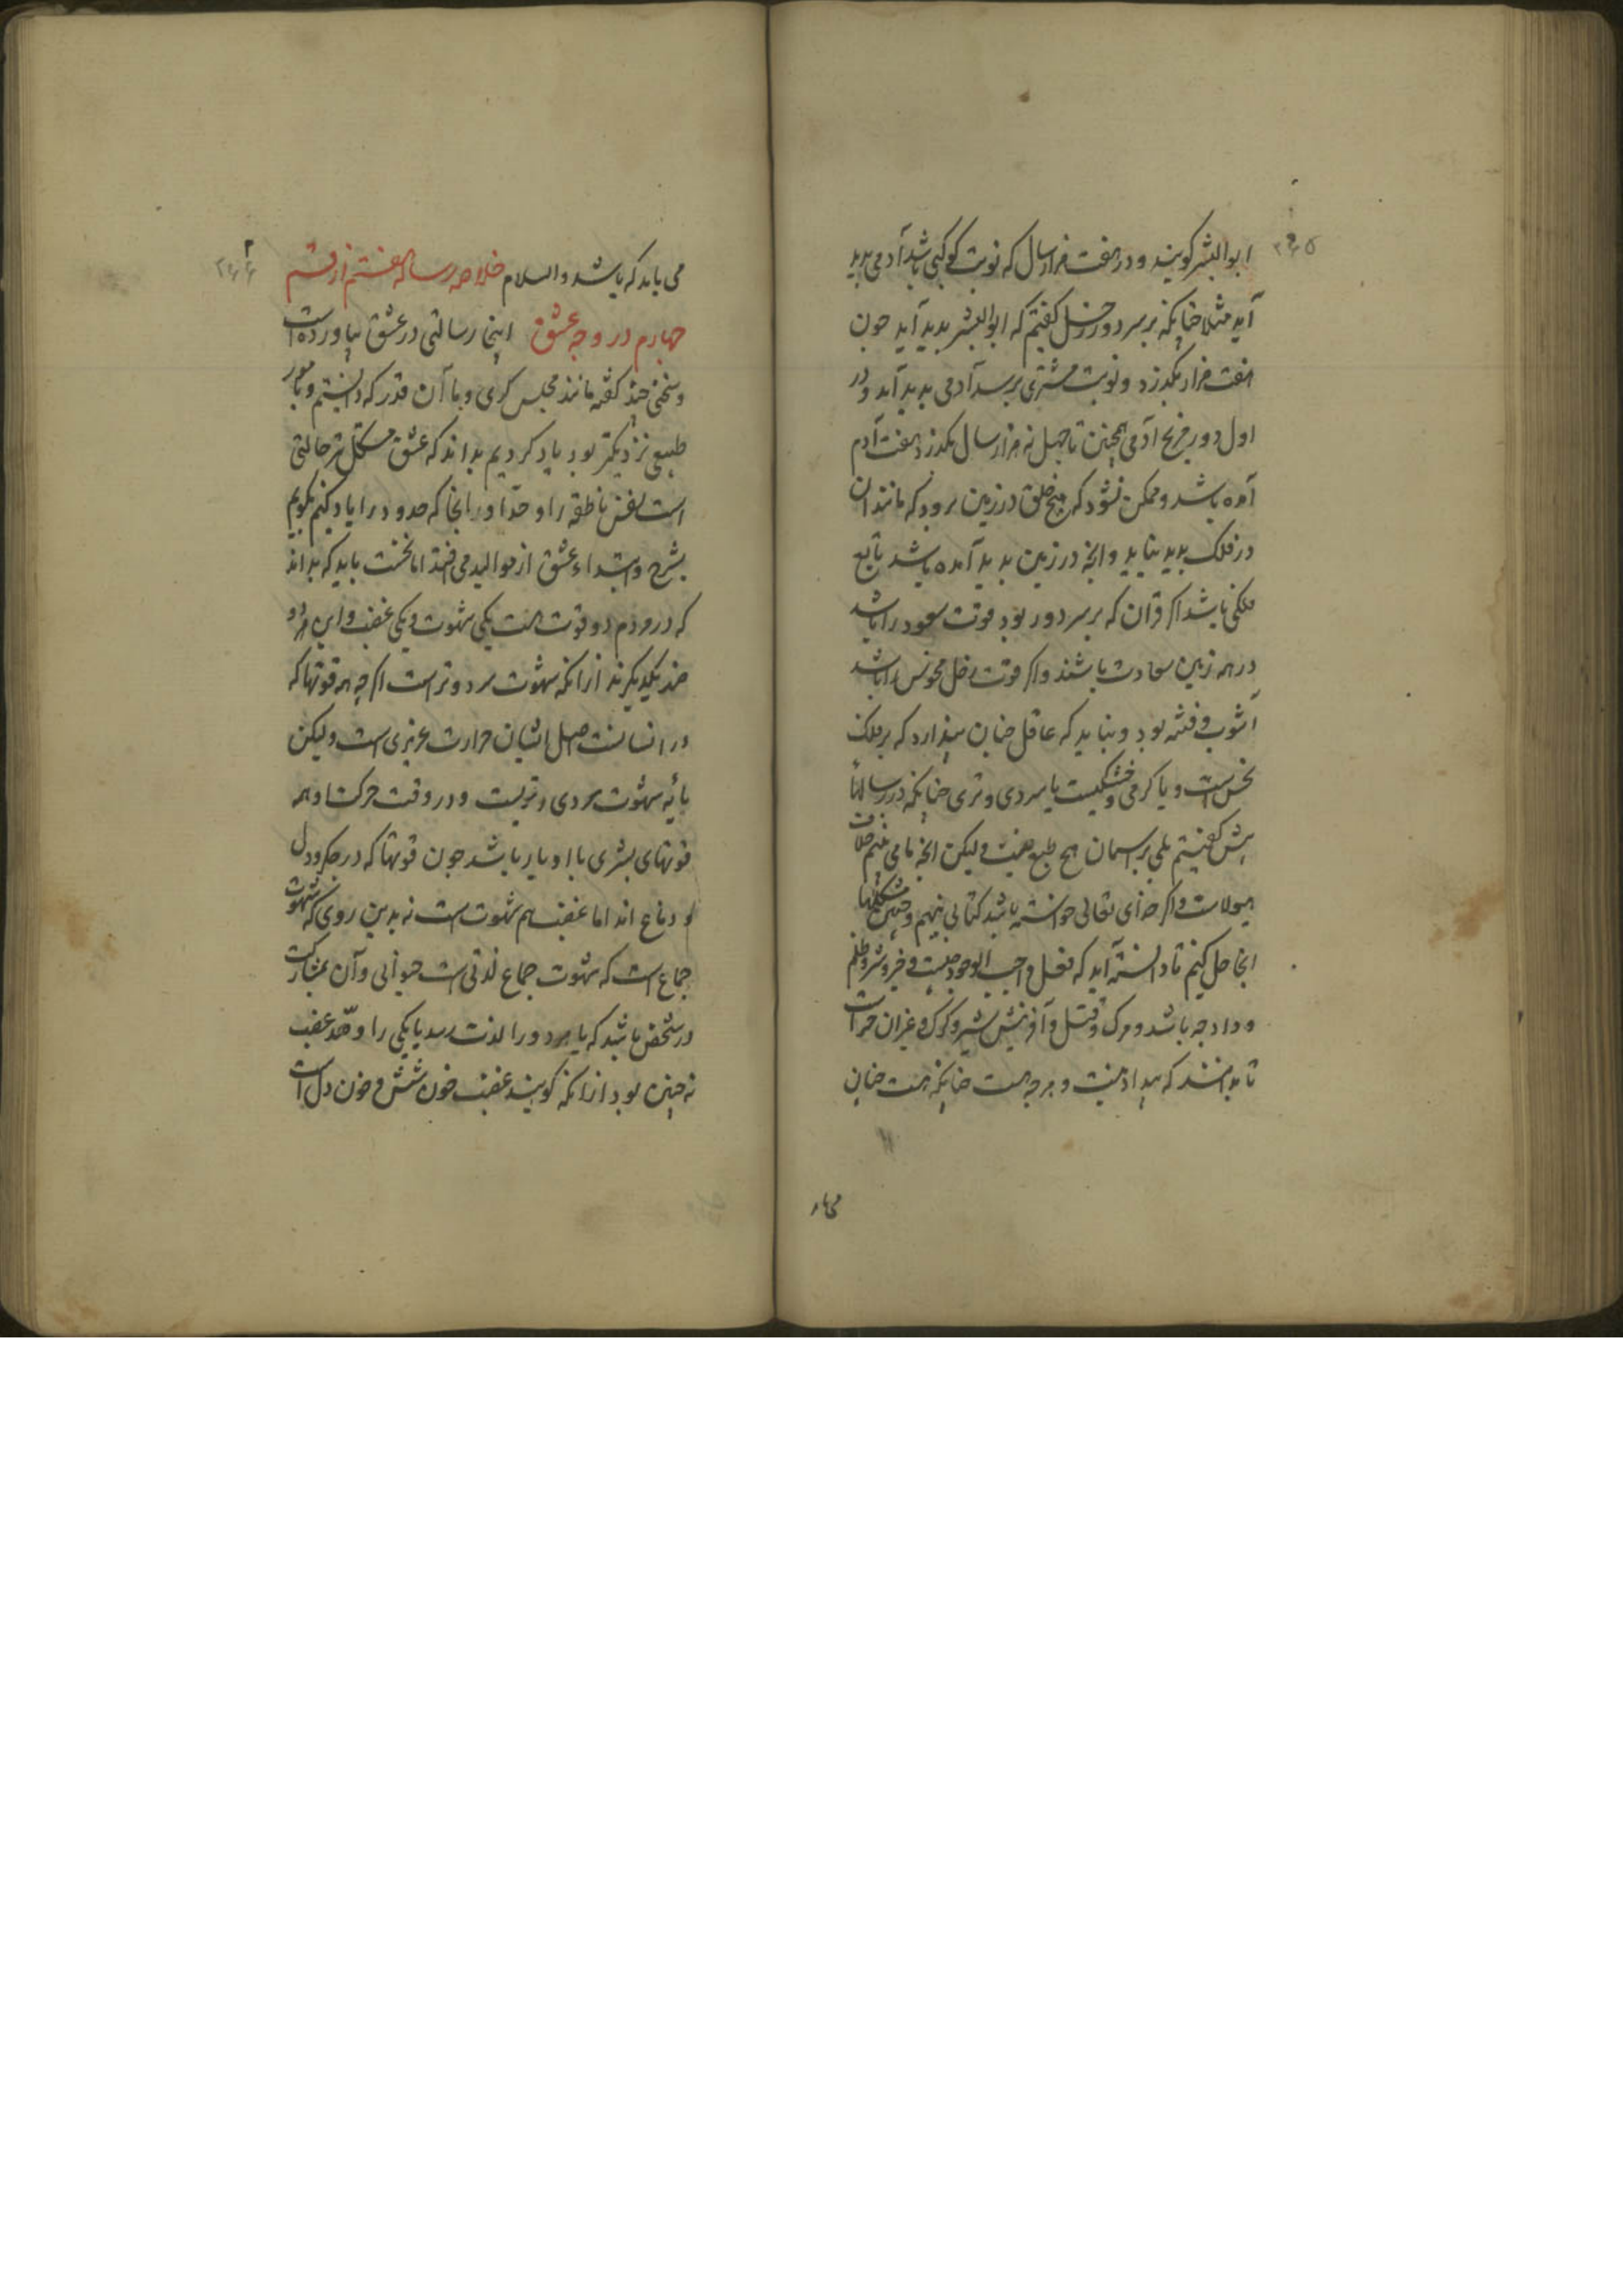 ۲۶۵
ابو البشر کویند و در هفت هزار سال که نوبت کوکبی باشد آدمی بدید
آید مثلا جنانکه بر سر دور زحل کفتیم که ابو البشر بدید آید جون
هفت هزار بکذرد و نوبت مشتری برسد آدمی بدید آید و در
اول دور مریخ آدمی همجنین تا جهل نه هزار سال بکذرد هفت آدم
آمده باشد و ممکن نشود که هیچ خلق در زمین برود که مانند آن
در فلک بدید نیاید و انجه در زمین بدید آمده باشد تابع
فلکی باشد اکر قران که بر سر دور بود قوت سعود را باشد
در همه زمین سعادت باشند و اکر قوت زحل نحوس را باشد
آشوب و فتنه بود و نباید که عاقل جنان پندارد که بر فلک
نحس است و یا کرمی و خشکیست یا سردی و تری جنانکه در رسالتها
پیش کفتیم بلی بر اسمان هیچ طبع نیست و لیکن انجه ما می بینیم خلاف
هیولاست و اکر خدای تعالی خواسته باشد کتابی بنهیم و جنین مشکلها
انجا حل کنیم تا دانسته آید که فعل واجب الوجود جیست و خیر و شر و ظلم
و داد جه باشد و مرک و قتل و آفرینش شیر و کرک و غیر ان جراست
تا بدانند که بیداد نیست و هر جه هست جنانکه هست جنان
می باید
۲۶۶
می باید که باشد والسلام خلاصه رساله هفتم از قسم
جهارم در وجه عشق اینجا رسالتی در عشق بیاورده است
و سخنی جند کفته مانند مجلس کری و ما آن قدر که دانستیم و بامور
طبیعی نزدیکتر بود یاد کردیم بداند که عشق مشکل تر حالتی
است نفس ناطقه را و حد او در انجا که حدود را یاد کنیم بکوییم
بشرح و ابتداء عشق از موالید می افتد اما نخست باید که بداند
که در مردم دو قوت هست یکی شهوت و یکی غضب و این هر دو
ضد یکدیکرند ازانکه شهوت سرد و تر است اکر جه همه قوتها که
در انسانست اصل ایشان حرارت غریزی است و لیکن
مایه شهوت سردی و تریست و در وقت حرکت او همه
قوتهای بشری با او یار باشد جون قوتها که در جکر و دل
و دماغ اند اما غضب هم شهوت است نه بدین روی که شهوت
جماع است که شهوت جماع لذتی است حیوانی و آن بمشارکت
دو شخص باشد که یا هر دو را لذت رسد یا یکی را و قصد غضب
نه جنین بود ازانکه کویند غضب خون شش و خون دل است